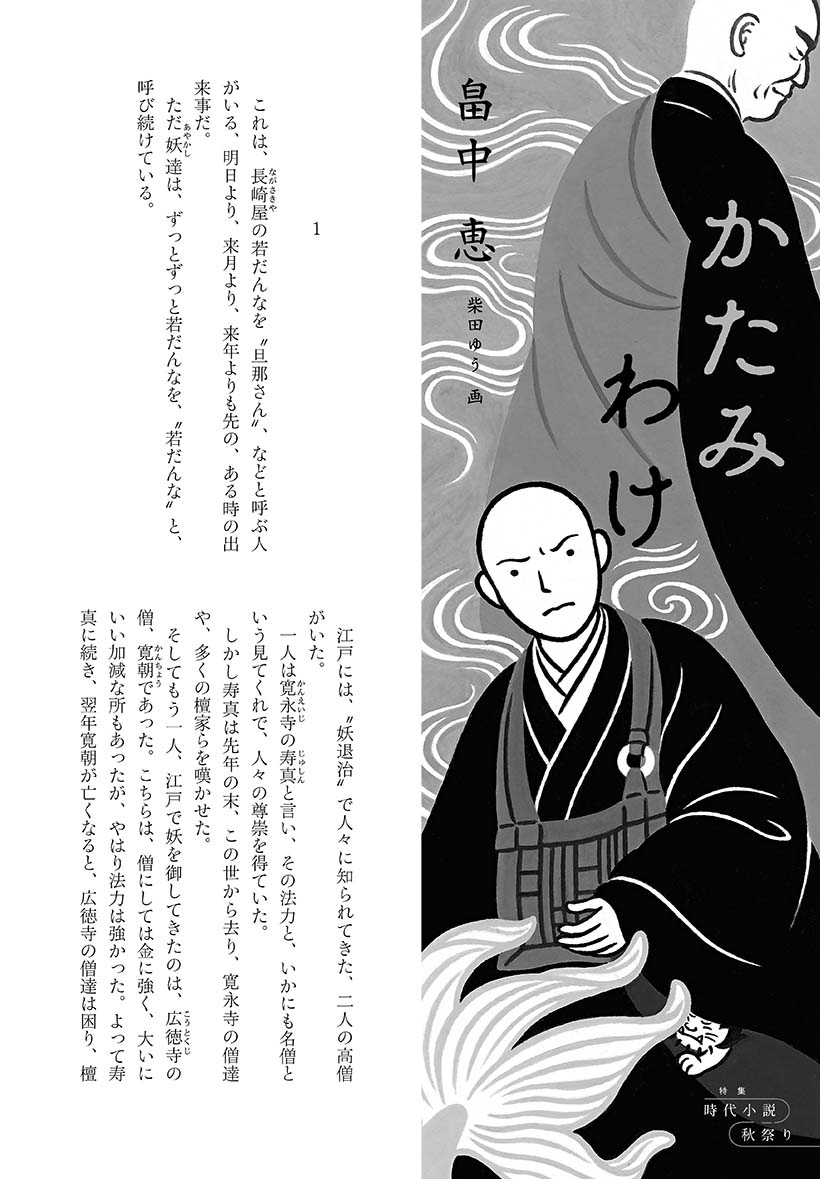 かたみ
わけ
畠中 恵
柴田ゆう 画
特集
時代小説
秋祭り
1
これは、長崎屋の若だんなを〝旦那さん〟、などと呼ぶ人
ながさきや
がいる、明日より、来月より、来年よりも先の、ある時の出
来事だ。
ただ妖達は、ずっとずっと若だんなを、〝若だんな〟と、
あやかし
呼び続けている。
江戸には、〝妖退治〟で人々に知られてきた、二人の高僧
がいた。
一人は寛永寺の寿真と言い、その法力と、いかにも名僧と
かんえいじ
じゅしん
いう見てくれで、人々の尊崇を得ていた。
しかし寿真は先年の末、この世から去り、寛永寺の僧達
や、多くの檀家らを嘆かせた。
そしてもう一人、江戸で妖を御してきたのは、広徳寺の
こうとくじ
僧、寛朝であった。こちらは、僧にしては金に強く、大いに
かんちょう
いい加減な所もあったが、やはり法力は強かった。よって寿
真に続き、翌年寛朝が亡くなると、広徳寺の僧達は困り、檀